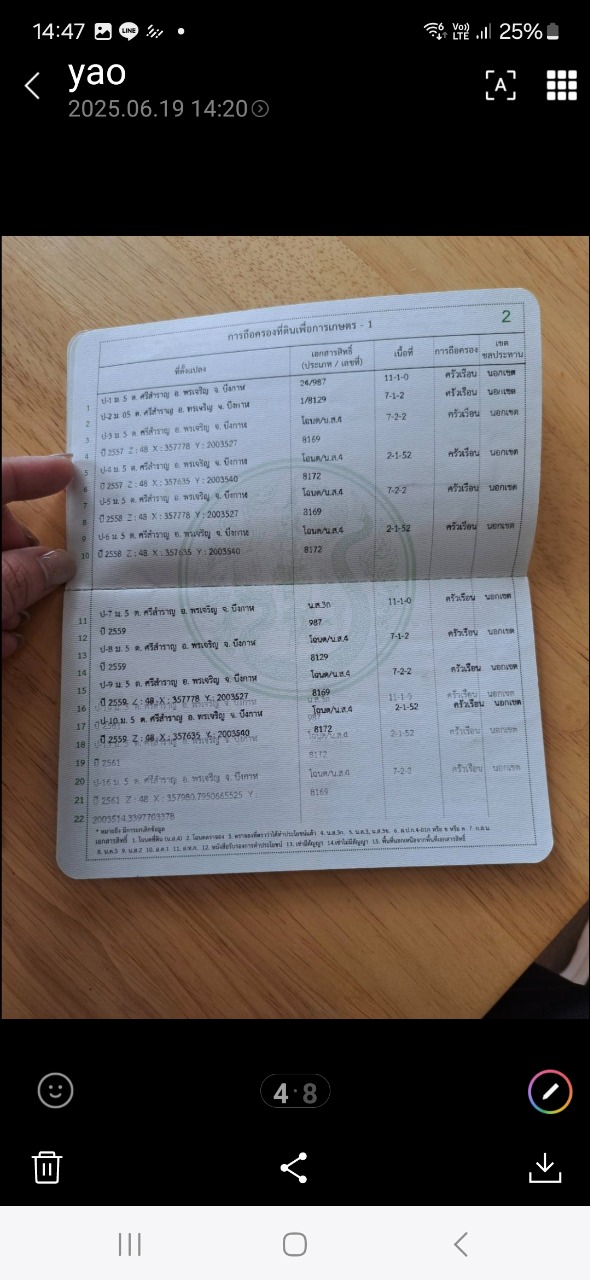 14:47
LINE
Vo)) LTE
25%
yao
2025.06.19 14:20
A
2
การถือครองที่ดินเพื่อการเกษตร - 1
ที่ตั้งแปลง เอกสารสิทธิ์ (ประเภท / เลขที่) เนื้อที่ การถือครอง เขตชลประทาน
1 ป-1 ม. 5 ต. ศรีสำราญ อ. พรเจริญ จ. บึงกาฬ 24/987 11-1-0 ครัวเรือน นอกเขต
2 ป-2 ม. 05 ต. ศรีสำราญ อ. พรเจริญ จ. บึงกาฬ 1/8129 7-1-2 ครัวเรือน นอกเขต
3 ป-3 ม. 5 ต. ศรีสำราญ อ. พรเจริญ จ. บึงกาฬ โฉนด/น.ส.4 7-2-2 ครัวเรือน นอกเขต
4 ปี 2557 Z : 48 X : 357778 Y : 2003527 8169
5 ป-4 ม. 5 ต. ศรีสำราญ อ. พรเจริญ จ. บึงกาฬ โฉนด/น.ส.4 2-1-52 ครัวเรือน นอกเขต
6 ปี 2557 Z : 48 X : 357635 Y : 2003540 8172
7 ป-5 ม. 5 ต. ศรีสำราญ อ. พรเจริญ จ. บึงกาฬ โฉนด/น.ส.4 7-2-2 ครัวเรือน นอกเขต
8 ปี 2558 Z : 48 X : 357778 Y : 2003527 8169
9 ป-6 ม. 5 ต. ศรีสำราญ อ. พรเจริญ จ. บึงกาฬ โฉนด/น.ส.4 2-1-52 ครัวเรือน นอกเขต
10 ปี 2558 Z : 48 X : 357635 Y : 2003540 8172
11 ป-7 ม. 5 ต. ศรีสำราญ อ. พรเจริญ จ. บึงกาฬ น.ส.3ก 11-1-0 ครัวเรือน นอกเขต
12 ปี 2559 987
13 ป-8 ม. 5 ต. ศรีสำราญ อ. พรเจริญ จ. บึงกาฬ โฉนด/น.ส.4 7-1-2 ครัวเรือน นอกเขต
14 ปี 2559 8129
15 ป-9 ม. 5 ต. ศรีสำราญ อ. พรเจริญ จ. บึงกาฬ โฉนด/น.ส.4 7-2-2 ครัวเรือน นอกเขต
16 ปี 2559 Z : 48 X : 357778 Y : 2003527 8169 11-1-0 ครัวเรือน นอกเขต
17 ป-10 ม. 5 ต. ศรีสำราญ อ. พรเจริญ จ. บึงกาฬ โฉนด/น.ส.4 2-1-52 ครัวเรือน นอกเขต
18 ปี 2559 Z : 48 X : 357635 Y : 2003540 8172 2-1-52 ครัวเรือน นอกเขต
19 ปี 2561 8172
20 ป-16 ม. 5 ต. ศรีสำราญ อ. พรเจริญ จ. บึงกาฬ โฉนด/น.ส.4 7-2-2 ครัวเรือน นอกเขต
21 ปี 2561 Z : 48 X : 357980.7950665525 Y : 8169
22 2003514.3397703378
* หมายถึง มีการยกเลิกข้อมูล
เอกสารสิทธิ์ 1. โฉนดที่ดิน (น.ส.4) 2. โฉนดตราจอง 3. ตราจองที่ตราว่าได้ทำประโยชน์แล้ว 4. น.ส.3ก. 5. น.ส.3, น.ส.3ข. 6. ส.ป.ก.4-01ก หรือ ข หรือ ค 7. ก.ส.น.
8. น.ค.3 9. น.ส.2 10. ส.ค.1 11. ส.ท.ก. 12. หนังสือรับรองการทำประโยชน์ 13. เช่ามีสัญญา 14. เช่าไม่มีสัญญา 15. พื้นที่นอกเหนือจากพื้นที่เอกสารสิทธิ์
4 · 8